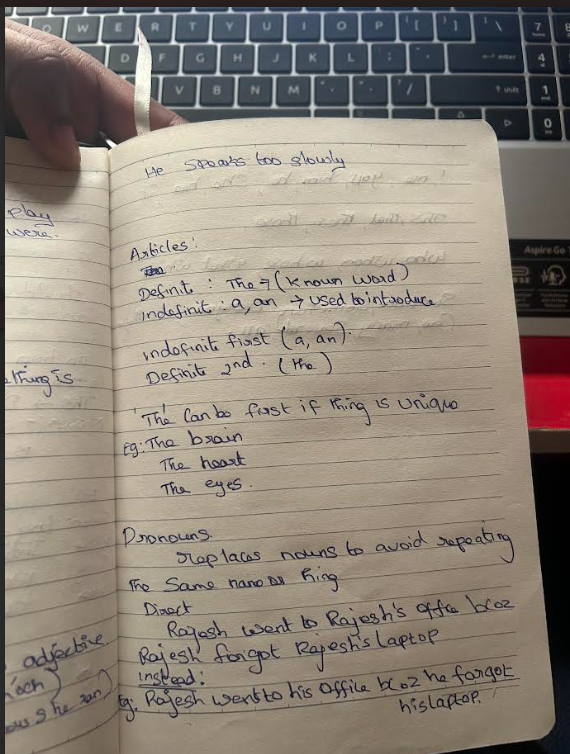 Q W E R T Y U I O P { [ } ] | \ 7 8
D F G H J K L : ; " ' enter 4
V B N M / ? shift 1
0
Aspire Go
He speaks too slowly
Articles:
Definit : The → (known word)
Indefinit : a, an → used to introduce
indefinite first (a, an).
Definite 2nd . (the)
'The' can be first if thing is unique
Eg: The brain
The heart
The eyes.
Pronouns.
replaces nouns to avoid repeating
The same name or thing
Direct
Rajesh went to Rajesh's office bcoz
Rajesh forgot Rajesh's laptop
instead:
Eg. Rajesh went to his office bcoz he forgot
his laptop.
play
were.
thing is
adjective
ow s he ran)